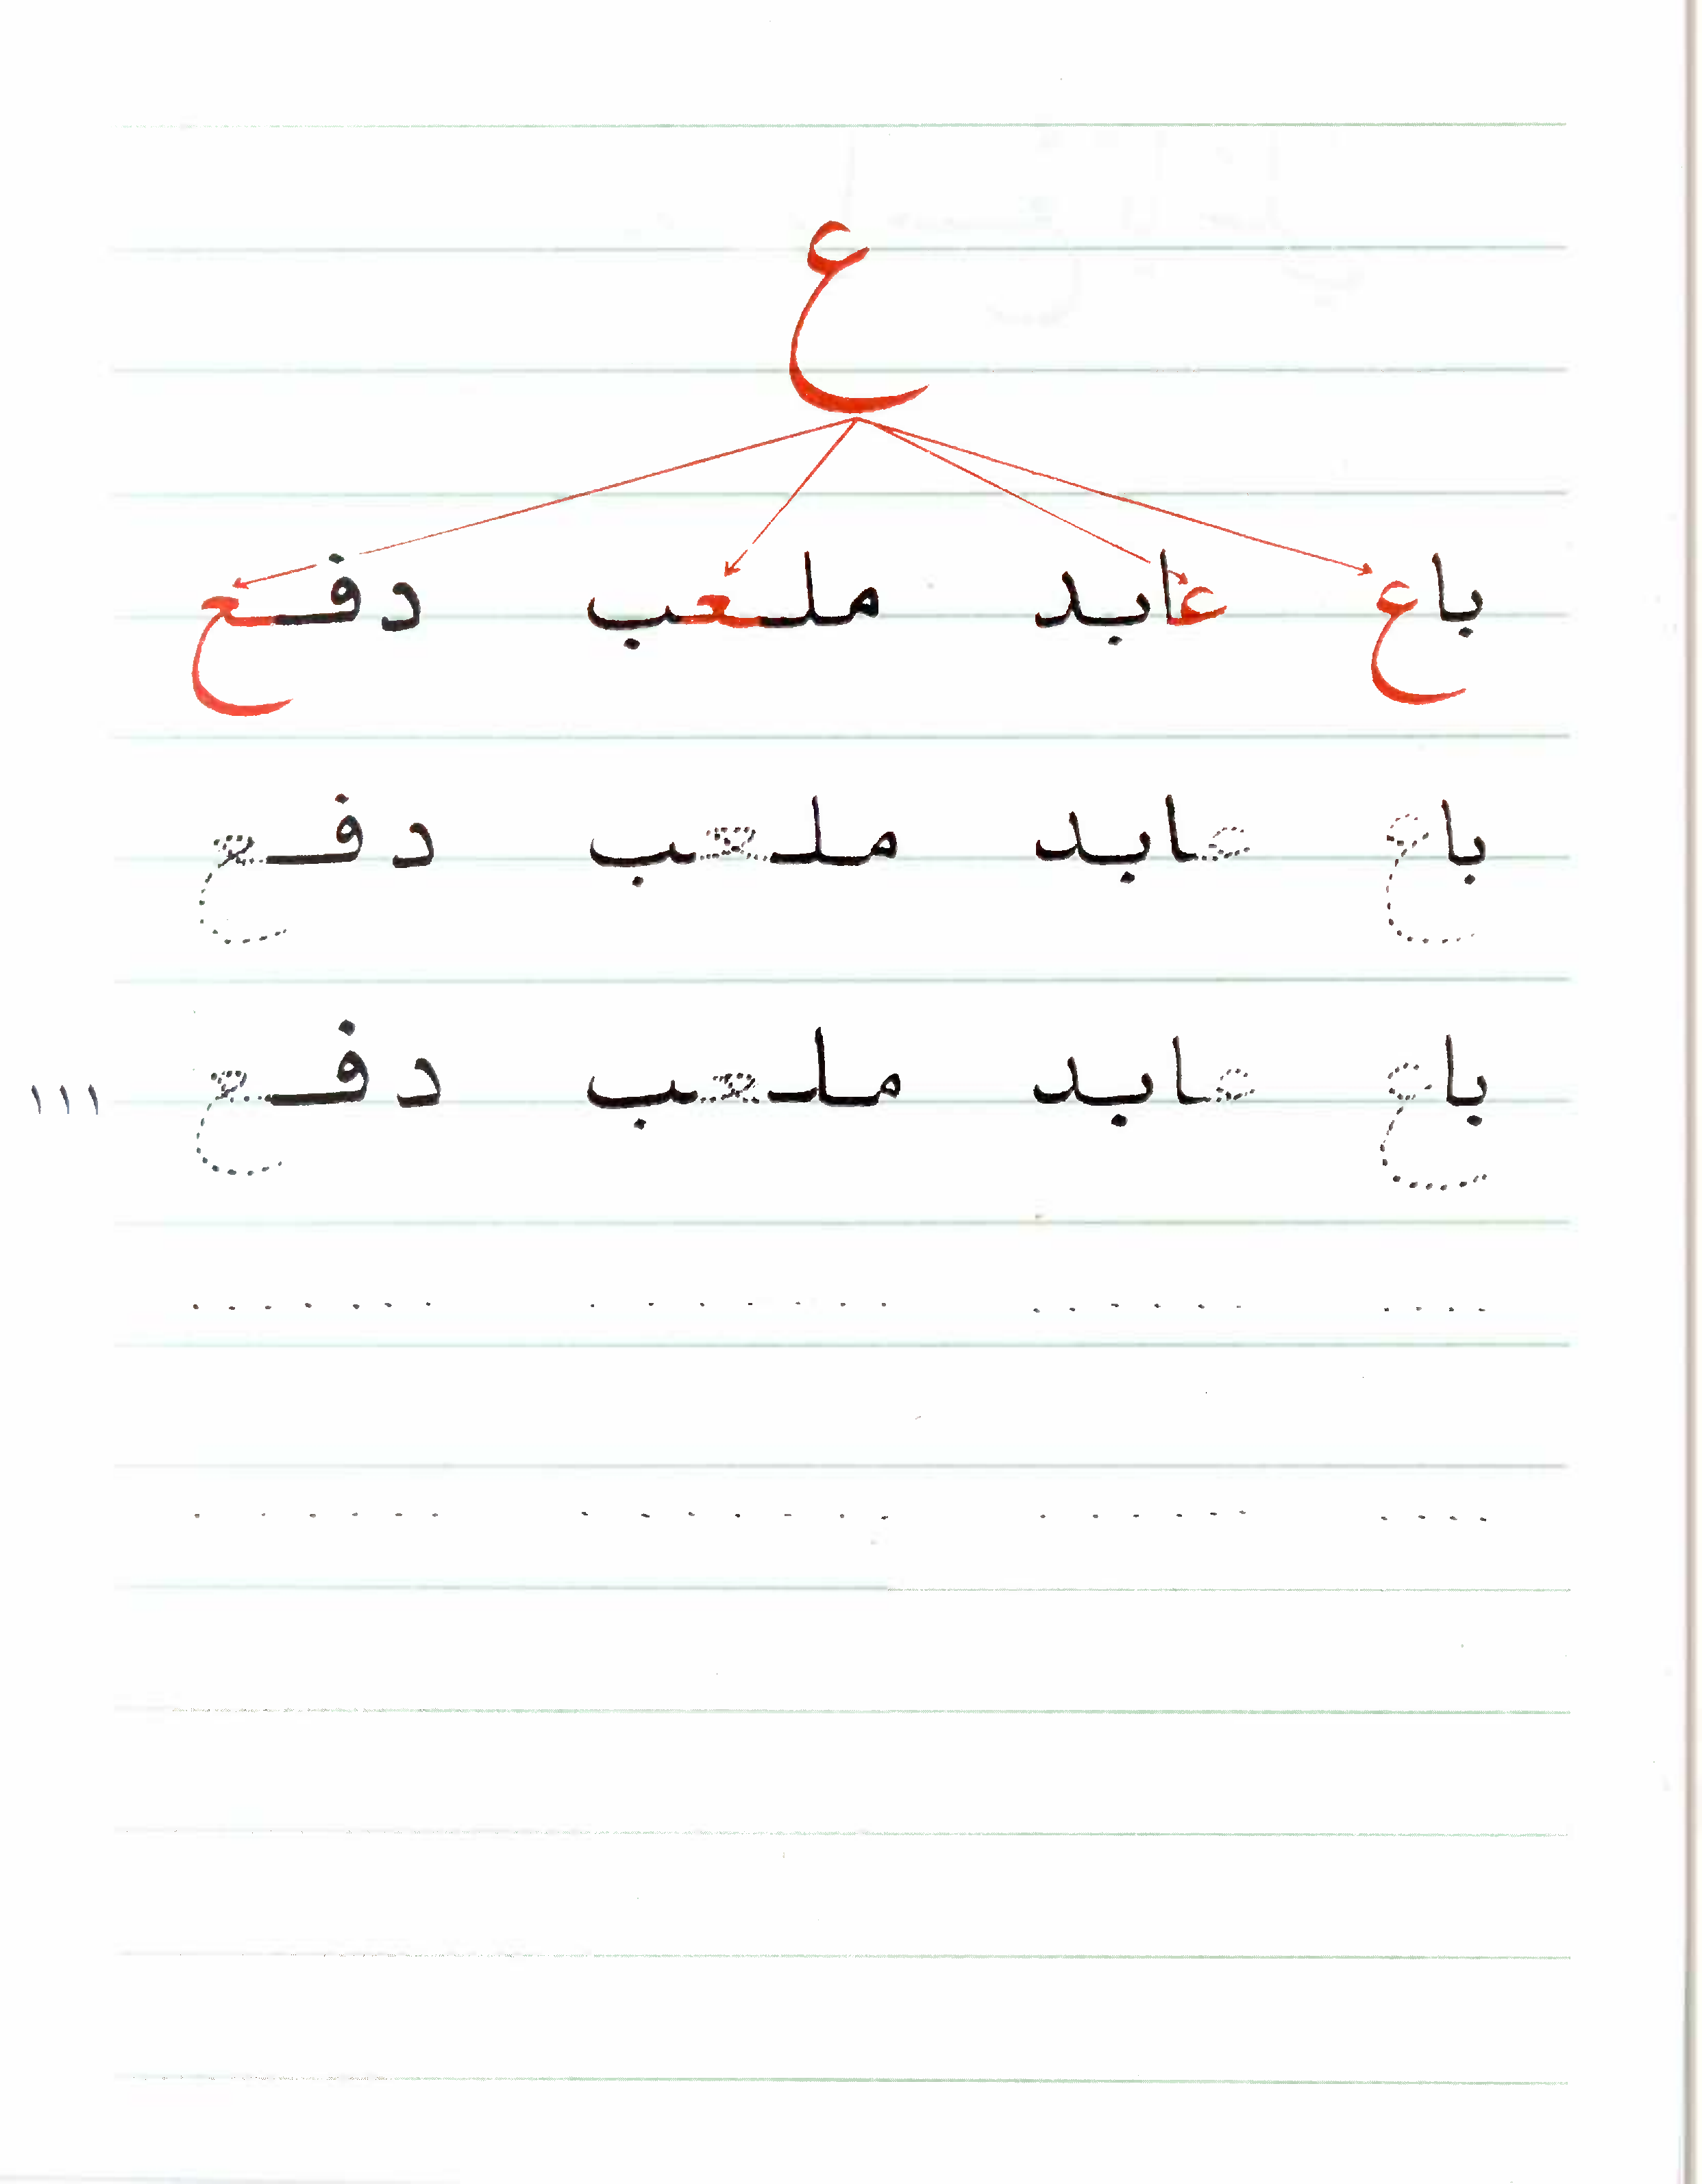 ع
باع عابد ملعب دفع
باع عابد ملعب دفع
باع عابد ملعب دفع
١١١